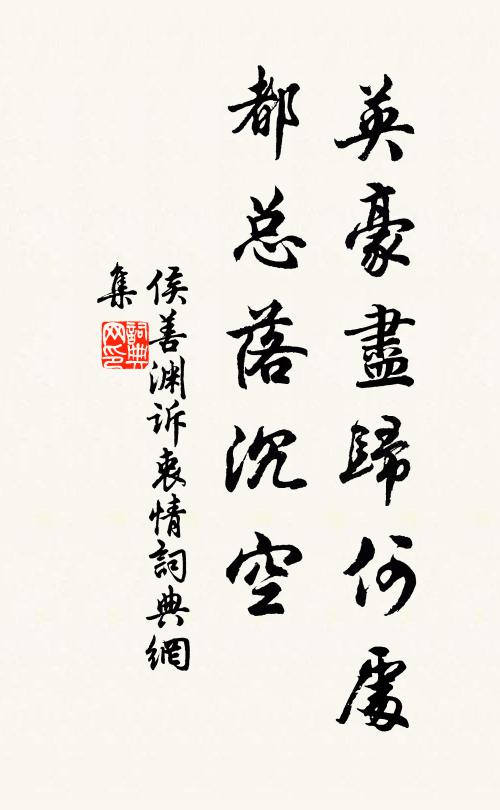 英豪盡歸何處
都总落沉空
侯善渊诉衷情詞典網
集
詞典网印